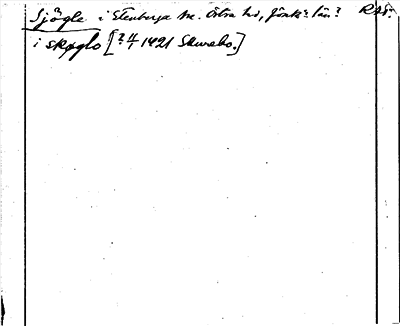 Sjögle i Stenberga sn. Östra hd, Jönk: län?
i skøglo [? 11/1 1421 Skurebo.]